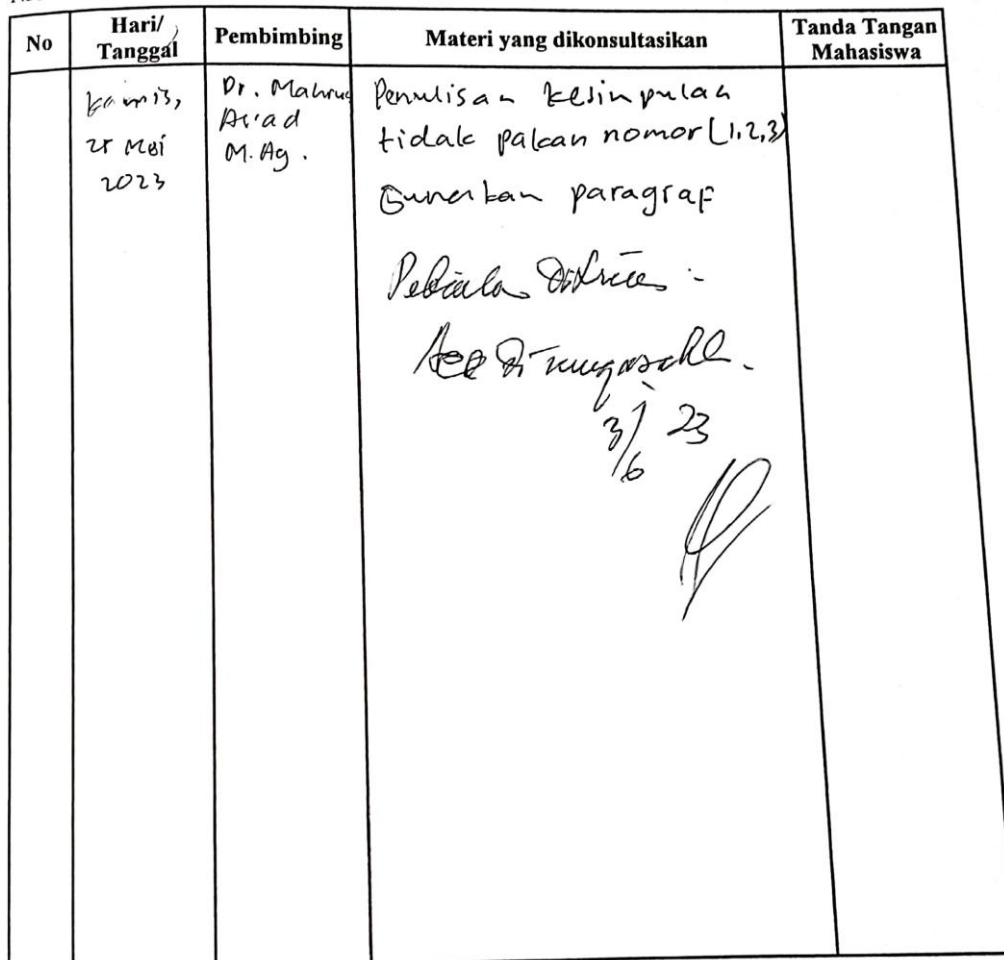 No
Hari/
Tanggal
Pembimbing
Materi yang dikonsultasikan
Tanda Tangan
Mahasiswa
Kamis,
Mei
2023
Dr. Mahrus
As'ad
M.Ag.
Penulisan kesimpulan
tidak pakan nomor (1,2,3)
Gunakan paragraf
3/6 23